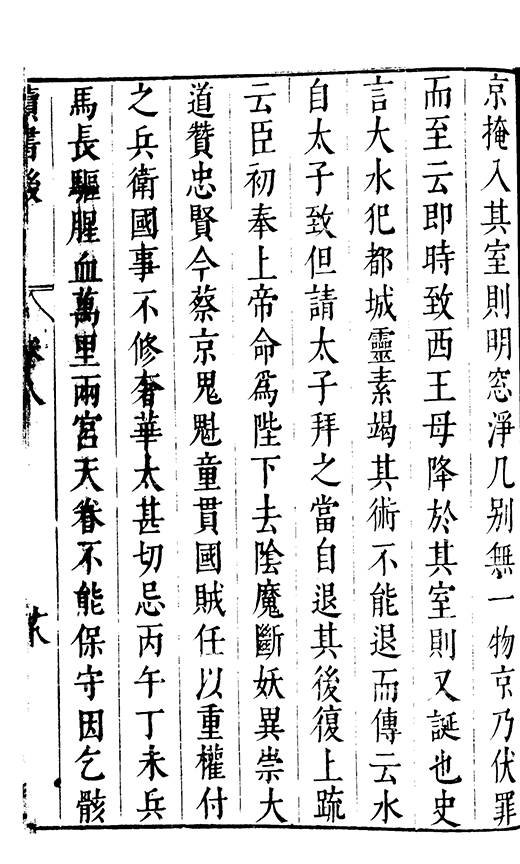 京掩入其室則明窓淨几别無一物京乃伏罪
而至云即時致西王母降於其室則又誕也史
言大水犯都城靈素竭其術不能退而傳云水
自太子致但請太子拜之當自退其後復上䟽
云臣初奉上帝命爲陛下去陰魔斷妖異崇大
道贊忠賢今蔡京鬼魁童貫國賊任以重權付
之兵衛國事不修奢華太甚切忌丙午丁未兵
馬長驅腥血萬里兩宮天眷不能保守因乞骸
讀書後
卷八